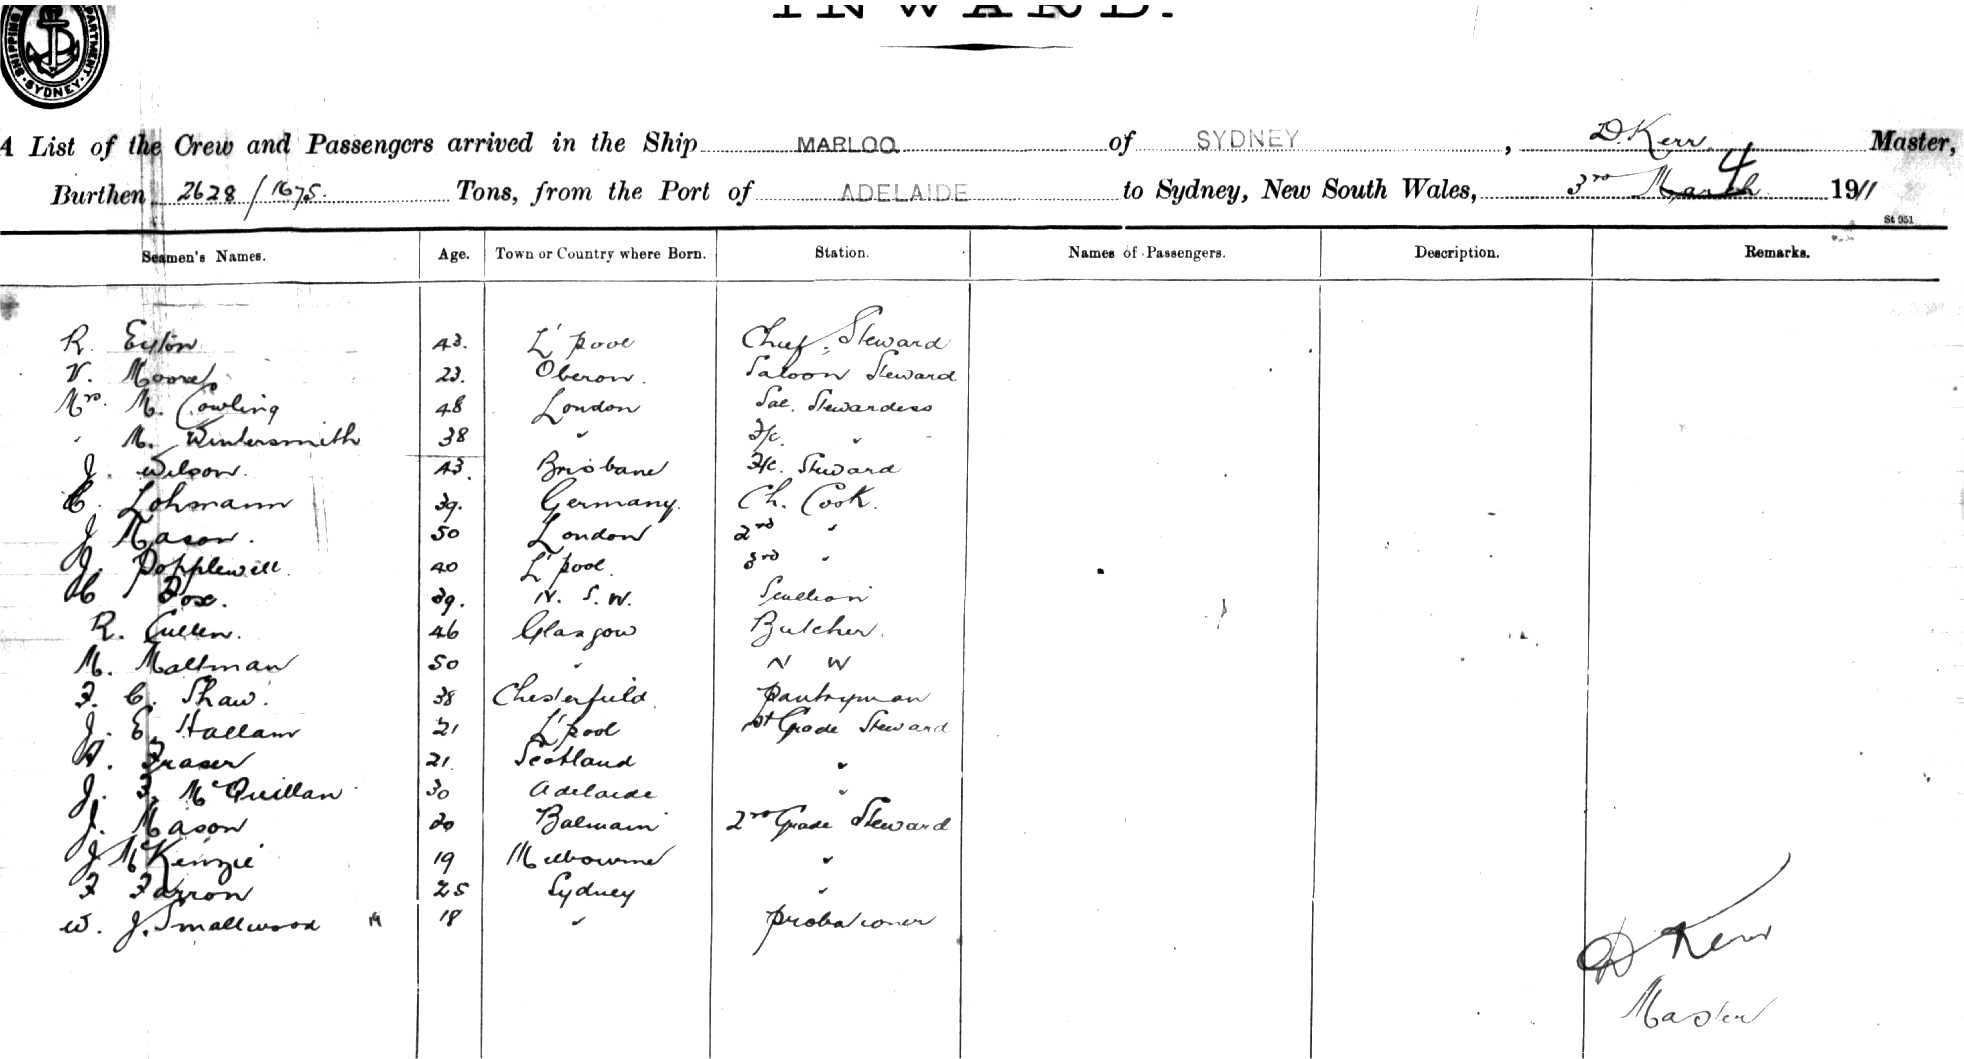 INWARD.
SHIPPING DEPARTMENT. SYDNEY.
A List of the Crew and Passengers arrived in the Ship MARLOO of SYDNEY, D. Kerr Master,
Burthen 2628/1675. Tons, from the Port of ADELAIDE to Sydney, New South Wales, 3rd March 4 1911
St 951
Seamen's Names. Age. Town or Country where Born. Station. Names of Passengers. Description. Remarks.
R. Eyton 43. L'pool Chief Steward
V. Moore 23. Oberon. Saloon Steward
Mrs. M. Cowling 48 London Sal. Stewardess
" M. Wintersmith 38 " 2/c. "
J. Wilson. 43. Brisbane 2/c. Steward
C. Lohmann 39. Germany. Ch. Cook.
J Mason. 50 London 2nd "
J. Popplewell. 40 L'pool. 3rd "
C Fox. 39. N. S. W. Scullion
R. Cullen. 46 Glasgow Butcher.
M. Maltman 50 " N W
F. C. Shaw. 38 Chesterfield. Pantryman
J. E. Hallam 21 L'pool 1st Grade Steward
A. Fraser 21. Scotland "
J. F. McQuillan 30 Adelaide "
J. Mason 20 Balmain 2nd Grade Steward
J McKenzie 19 Melbourne "
F Farron 25 Sydney "
W. J. Smallwood 18 " Probationer
D Kerr
Master